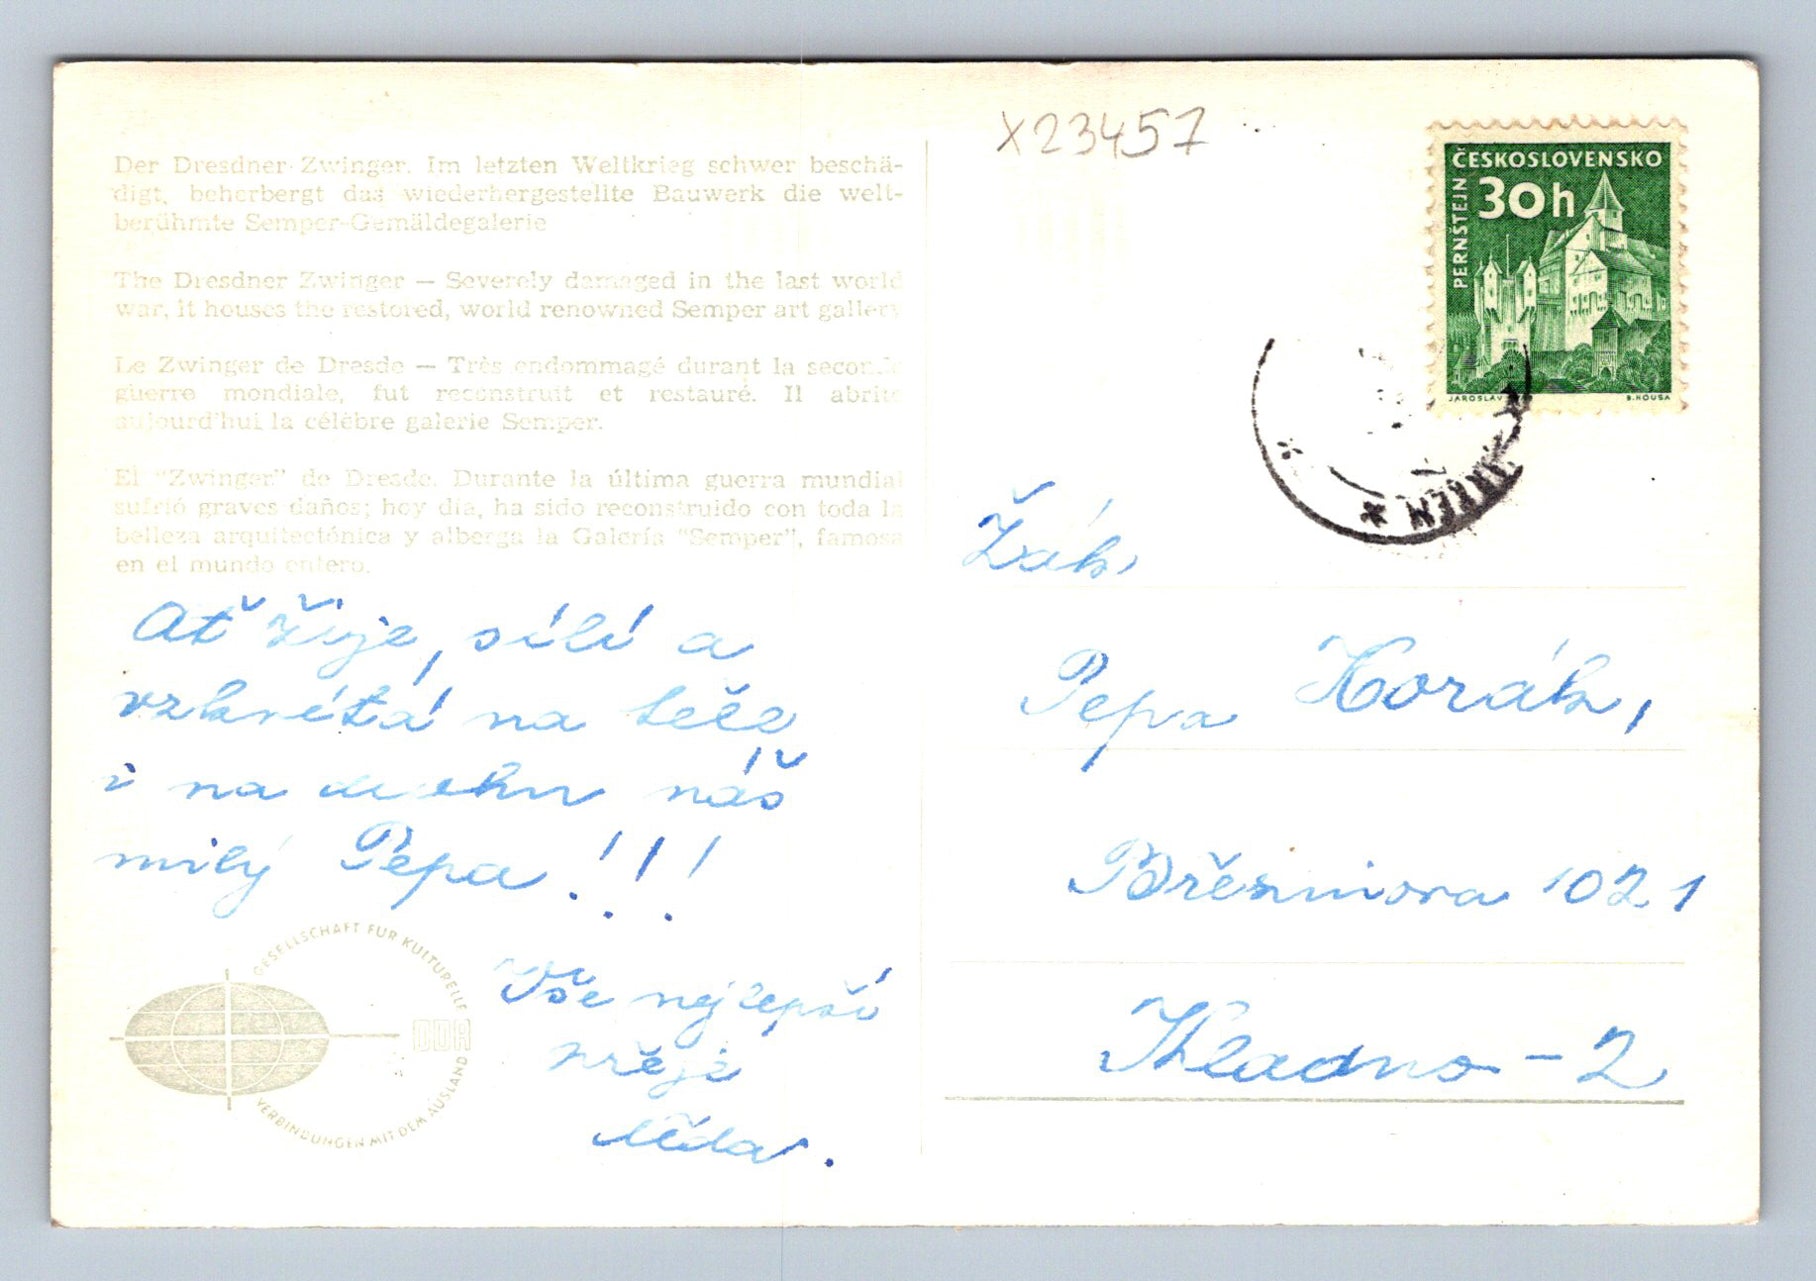 Der Dresdner Zwinger. Im letzten Weltkrieg schwer beschä-
digt, beherbergt das wiederhergestellte Bauwerk die welt-
berühmte Semper-Gemäldegalerie
The Dresdner Zwinger — Severely damaged in the last world
war, it houses the restored, world renowned Semper art gallery
Le Zwinger de Dresde — Très endommagé durant la seconde
guerre mondiale, fut reconstruit et restauré. Il abrite
aujourd'hui la célèbre galerie Semper.
El "Zwinger" de Dresde. Durante la última guerra mundial
sufrió graves daños; hoy día, ha sido reconstruido con toda la
belleza arquitectónica y alberga la Galería "Semper", famosa
en el mundo entero.
Ať žije, sílí a
vzkvétá na těle
i na duchu náš
milý Pepa!!!
Vše nejlepší
přeje
GESELLSCHAFT FÜR KULTURELLE
VERBINDUNGEN MIT DEM AUSLAND
DDR
X23457
ČESKOSLOVENSKO
30h
PERNŠTEJN
JAROSLAV
B. HOUSA
Žák
Pepa Horák,
1021
Kladno-2